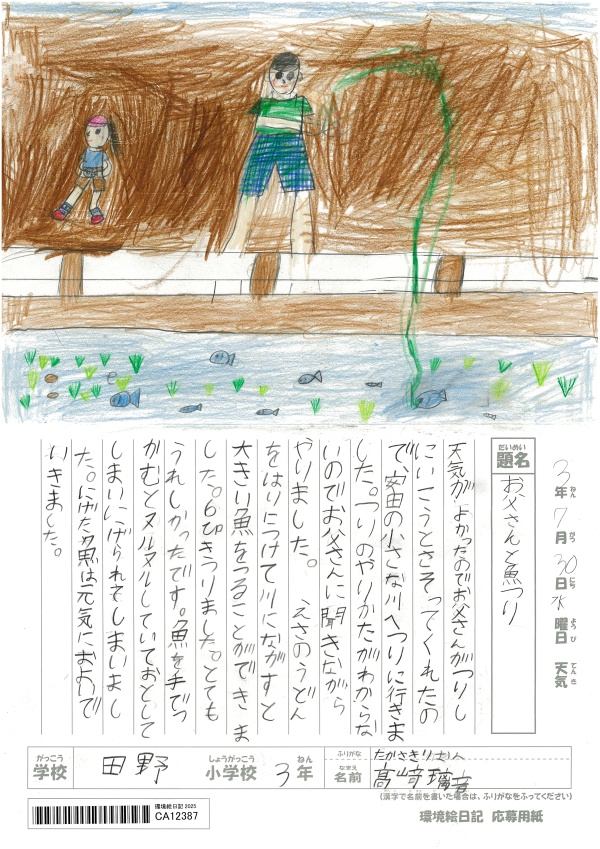 3年 7月 30日 水曜日 天気
ねん がつ にち ようび てんき
だいめい
題名
お父さんと魚つり
天気がよかったのでお父さんがつりし
にいこうとさそってくれたの
で、安田の小さな川へつりに行きま
した。つりのやりかたがわからな
いのでお父さんに聞きながら
やりました。 えさのうどん
をはりにつけて川にながすと
大きい魚をつることができま
した。6ぴきつりました。とても
うれしかったです。魚を手でつ
かむとヌルヌルしていておとして
しまいにげられてしまいまし
た。にげた魚は元気におよいで
いきました。
がっこう
学校
田野
しょうがっこう
小学校
3年
ねん
ふりがな
たかさき
なまえ
名前
高﨑
(漢字で名前を書いた場合は、ふりがなをふってください)
環境絵日記 2025
CA12387
環境絵日記 応募用紙